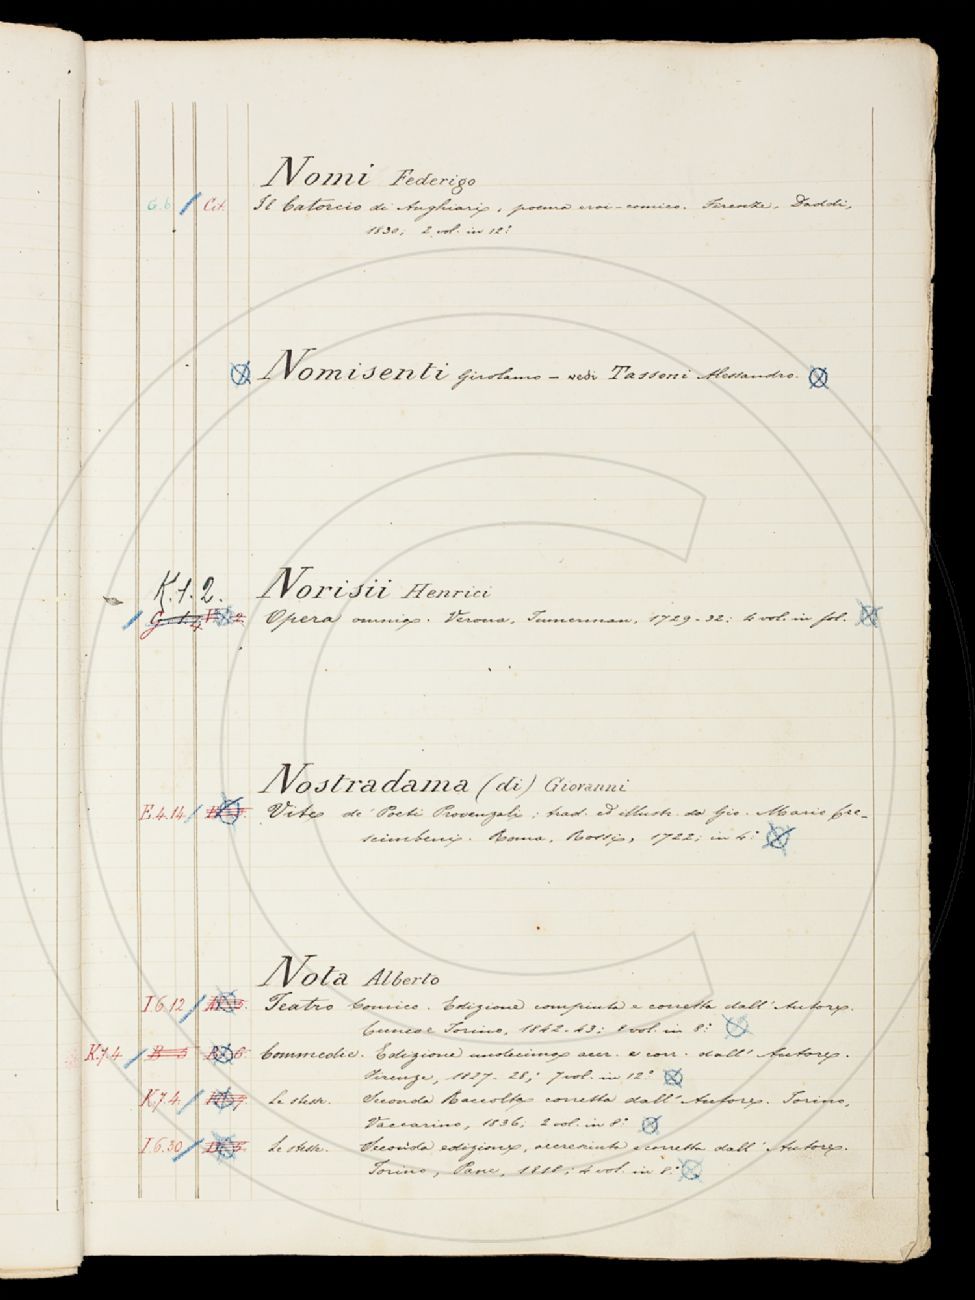 Nomi Federigo
G.6 Cit. Il Catorcio di Anghiari, poema eroi-comico. Firenze, Daddi,
1830; 2 vol. in 12°
Nomisenti Girolamo – vedi Tassoni Alessandro.
K.1.2.
Norisii Henrici
Opera omnia. Verona, Tumerman, 1729-32; 4 vol. in fol.
Nostradama (di) Giovanni
E.4.14 Vite de' Poeti Provenzali; trad. ed illustr. da Gio. Mario Cre-
scimbeni. Roma, Rossi, 1722; in 4°
Nota Alberto
I.6.12 Teatro Comico. Edizione compiuta e corretta dall' Autore.
Torino, 1842-43; 8 vol. in 8°
K.7.4 Commedie. Edizione undecima accr. e corr. dall' Autore.
Firenze, 1827-28; 7 vol. in 12°
K.7.4. Le stesse. Seconda Raccolta corretta dall' Autore. Torino,
Vaccarino, 1836, 2 vol. in 8°
I.6.30 Le stesse. Seconda edizione, accresciuta e corretta dall' Autore.
Torino, Pane, 1818; 4 vol. in 8°